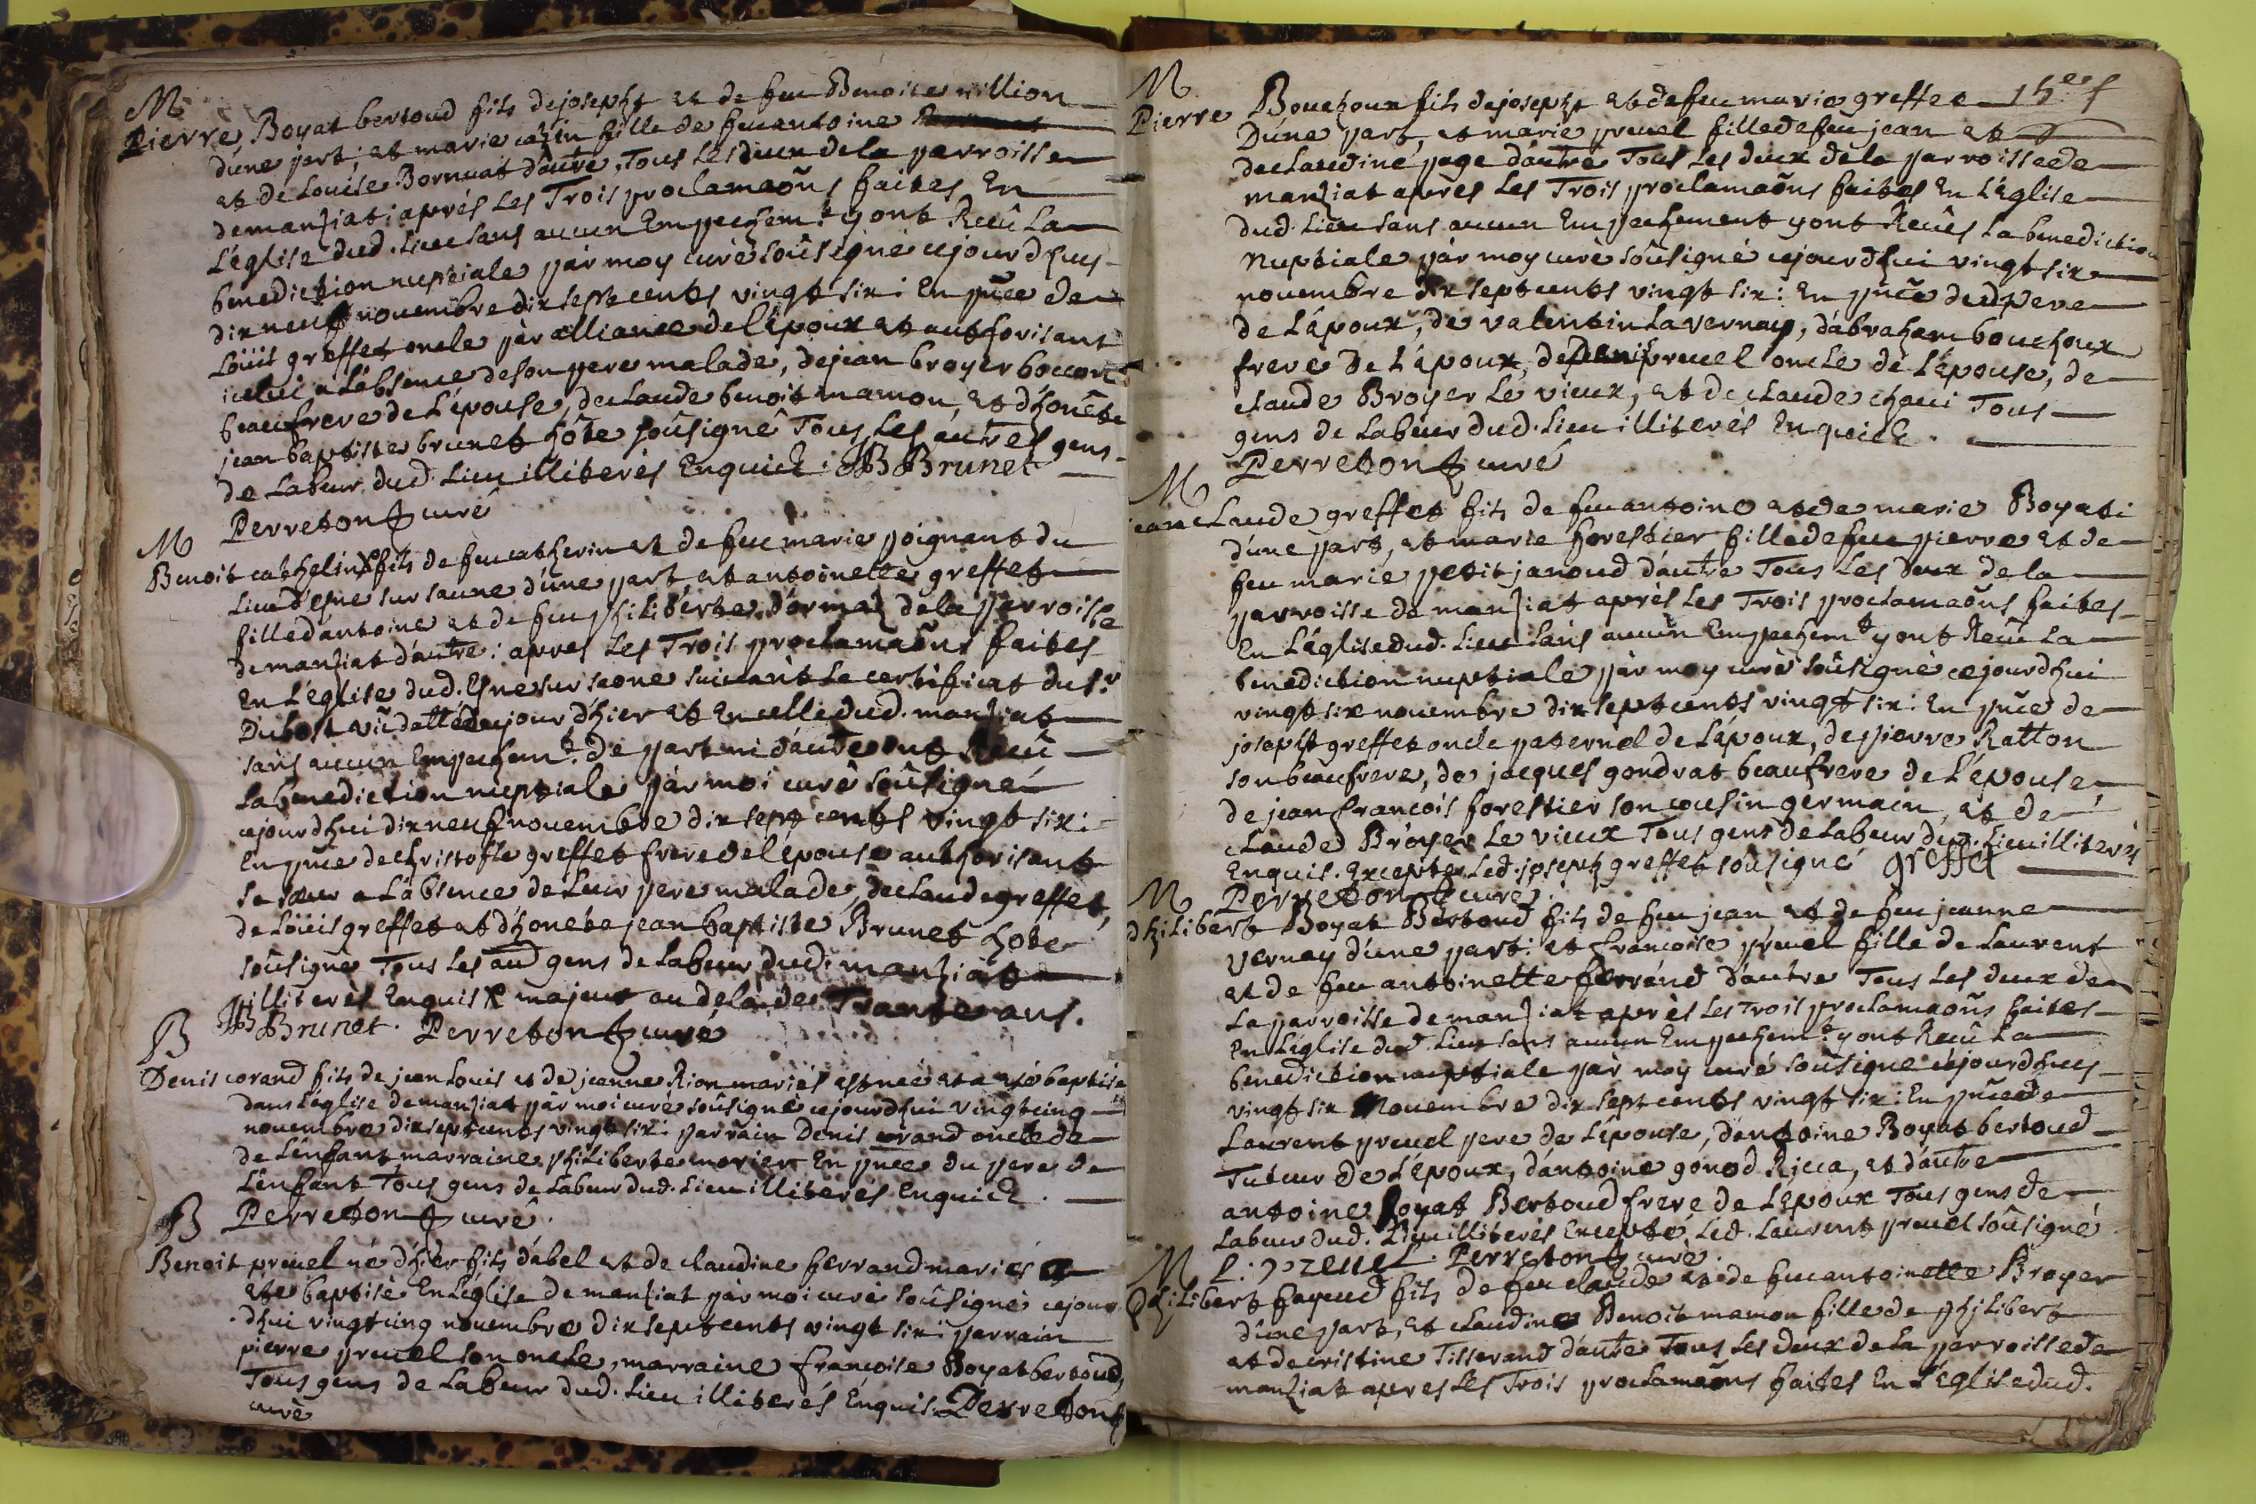 M
Pierre Boyat bertoud fils de josepht et de feu Benoite million
d'une part, et marie cazin fille de feu antoine
et de Louise Bornuat d'autre, Tous Les deux de la parroisse
de manziat; aprés Les Trois proclamaõns faites En
L'église dud. Lieu sans aucun Empechem.t y ont Receû La
benediction nuptiale pàr moy curé soûsigné cejourd'huy
dix neuf novembre dix sept cents vingt six: En pñce de
Loüis greffet oncle pàr alliance de l'Epoux et authorisant
icelui a L'absence de son pere malade, de jean broyer boccon
beaufrere de L'épouse, de claude benoit mamon, et d'honête
jean baptiste brunet hôte soûsigné Tous Les autres gens
de Labeur dud. Lieu illiterés Enquicz. JB Brunet
Perreton curé
M
Benoit cathelin fils de feu catherin et de feu marie poignant du
Lieu d'Esne sur saune d'une part et antoinette greffet
fille d'antoine et de feu philiberte dormaz de la parroisse
de manziat d'autre: apres Les Trois proclamaõns faites
En L'église dud. Esne sur saone suivant Le certificat du s.r
Dubost vic datté du jour d'hier et En celle dud. manziat
sans aucun Empechem.t de part ni d'autre ont Receû
La benediction nuptiale pàr moi curé soûsigné
cejourd'hui dix neuf novembre dix sept cents vingt six:
En pñce de christofle greffet frere de l'Epouse authorisant
sa sœur a L'absence de Leur pere malade, de claude greffet,
de Loüis greffet et d'honête jean baptiste Brunet hôte
soûsigné Tous Les aud gens de Labeur dud. manziat
illiterés Enquis & majeur au dela de Trante ans.
JB Brunet. Perreton curé
B
Denis corand fils de jean Louis et de jeanne Rion mariés est neé et a eté baptisé
dans L'église de manziat pàr moi curé soûsigné cejourd'hui vingt cinq
novembre dix sept cents vingt six: parrain Denis corand oncle de
de L'enfant, marraine philiberte morier En pñce du pere de
L'enfant Tous gens de Labeur dud. Lieu illiterés Enquicz.
B Perreton curé.
Benoit preuel né d'hier fils d'abel et de claudine ferrand mariés a
eté baptisé En L'église de manziat pàr moi curé soûsigné cejour
d'hui vingt cinq novembre dix sept cents vingt six: parrain
pierre preuel son oncle, marraine françoise Boyat bertoud,
Tous gens de Labeur dud. Lieu illiterés Enquis. Perreton
curé
15e f
M
Pierre Bouchoux fils de josepht et de feu marie greffet
D'une part, et marie preuel fille de feu jean et
de claudine page d'autre Tous Les deux de la parroisse de
manziat aprés Les Trois proclamaõns faites En L'église
dud. Lieu sans aucun Empechement y ont Receûs La benediction
nuptiale pàr moy curé soûsigné cejourd'hui vingt six
novembre dix sept cents vingt six: En pñce dud pere
de L'époux, de valentin Lavernay, d'abraham bouchoux
frere de L'époux, de Denis preuel oncle de L'épouse, de
claude Broyer Le vieux, et de claude chani Tous
gens de Labeur dud. Lieu illiterés Enquicz.
Perreton curé
M
jean claude greffet fils de feu antoine et de marie Boyat:
d'une part, et marie forestier fille de feu pierre et de
feu marie petit janoud d'autre Tous Les deux de la
parroisse de manziat aprés Les Trois proclamaõns faites
En L'église dud. Lieu sans aucun Empechem.t y ont Receû La
benediction nuptiale pàr moy curé soûsigné cejourd'hui
vingt six novembre dix sept cents vingt six: En pñce de
josepht greffet oncle paternel de L'époux, de pierre Ratton
son beaufrere, de jacques gondrat beaufrere de L'épouse
de jean françois forestier son cousin germain, et de
claude Broyer Le vieux Tous gens de Labeur dud. Lieu illiterés
Enquis. Excepté Led. joseph greffet soûsigné greffet
M Perreton curé.
philibert Boyat Bertoud fils de feu jean et de feu jeanne
vernay d'une part: et françoise preuel fille de Laurent
et de feu antoinette ferrand d'autre Tous Les deux de
La parroisse de manziat aprés Les Trois proclamaõns faites
En L'église dud. Lieu sans aucun Empechem.t y ont Receû La
benediction nuptiale pàr moy curé soûsigné cejourd'huy
vingt six Novembre dix sept cents vingt six: En pñce de
Laurent preuel pere de L'épouse, d'antoine Boyat bertoud
Tuteur de L'époux, d'antoine gonod Ricca, et d'autre
antoine Boyat Bertoud frere de L'époux Tous gens de
Labeur dud. Lieu illiterés Excepté Led. Laurent preuel soûsigné
M L. preuel. Perreton curé.
Philibert fayeud fils de feu claude et de feu antoinette Broyer
d'une part, et claudine Benoit mamon fille de philibert
et de cristine Tisserand d'autre Tous Les deux de La parroisse de
manziat apres Les Trois proclamaõns faites En L'église dud.